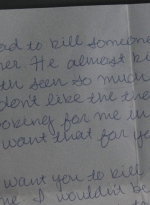 ad to kill someone
her. He almost ki
seen so much
don't like the the
ooking for me in
want that for yo
want you to kill
me I wouldn't be